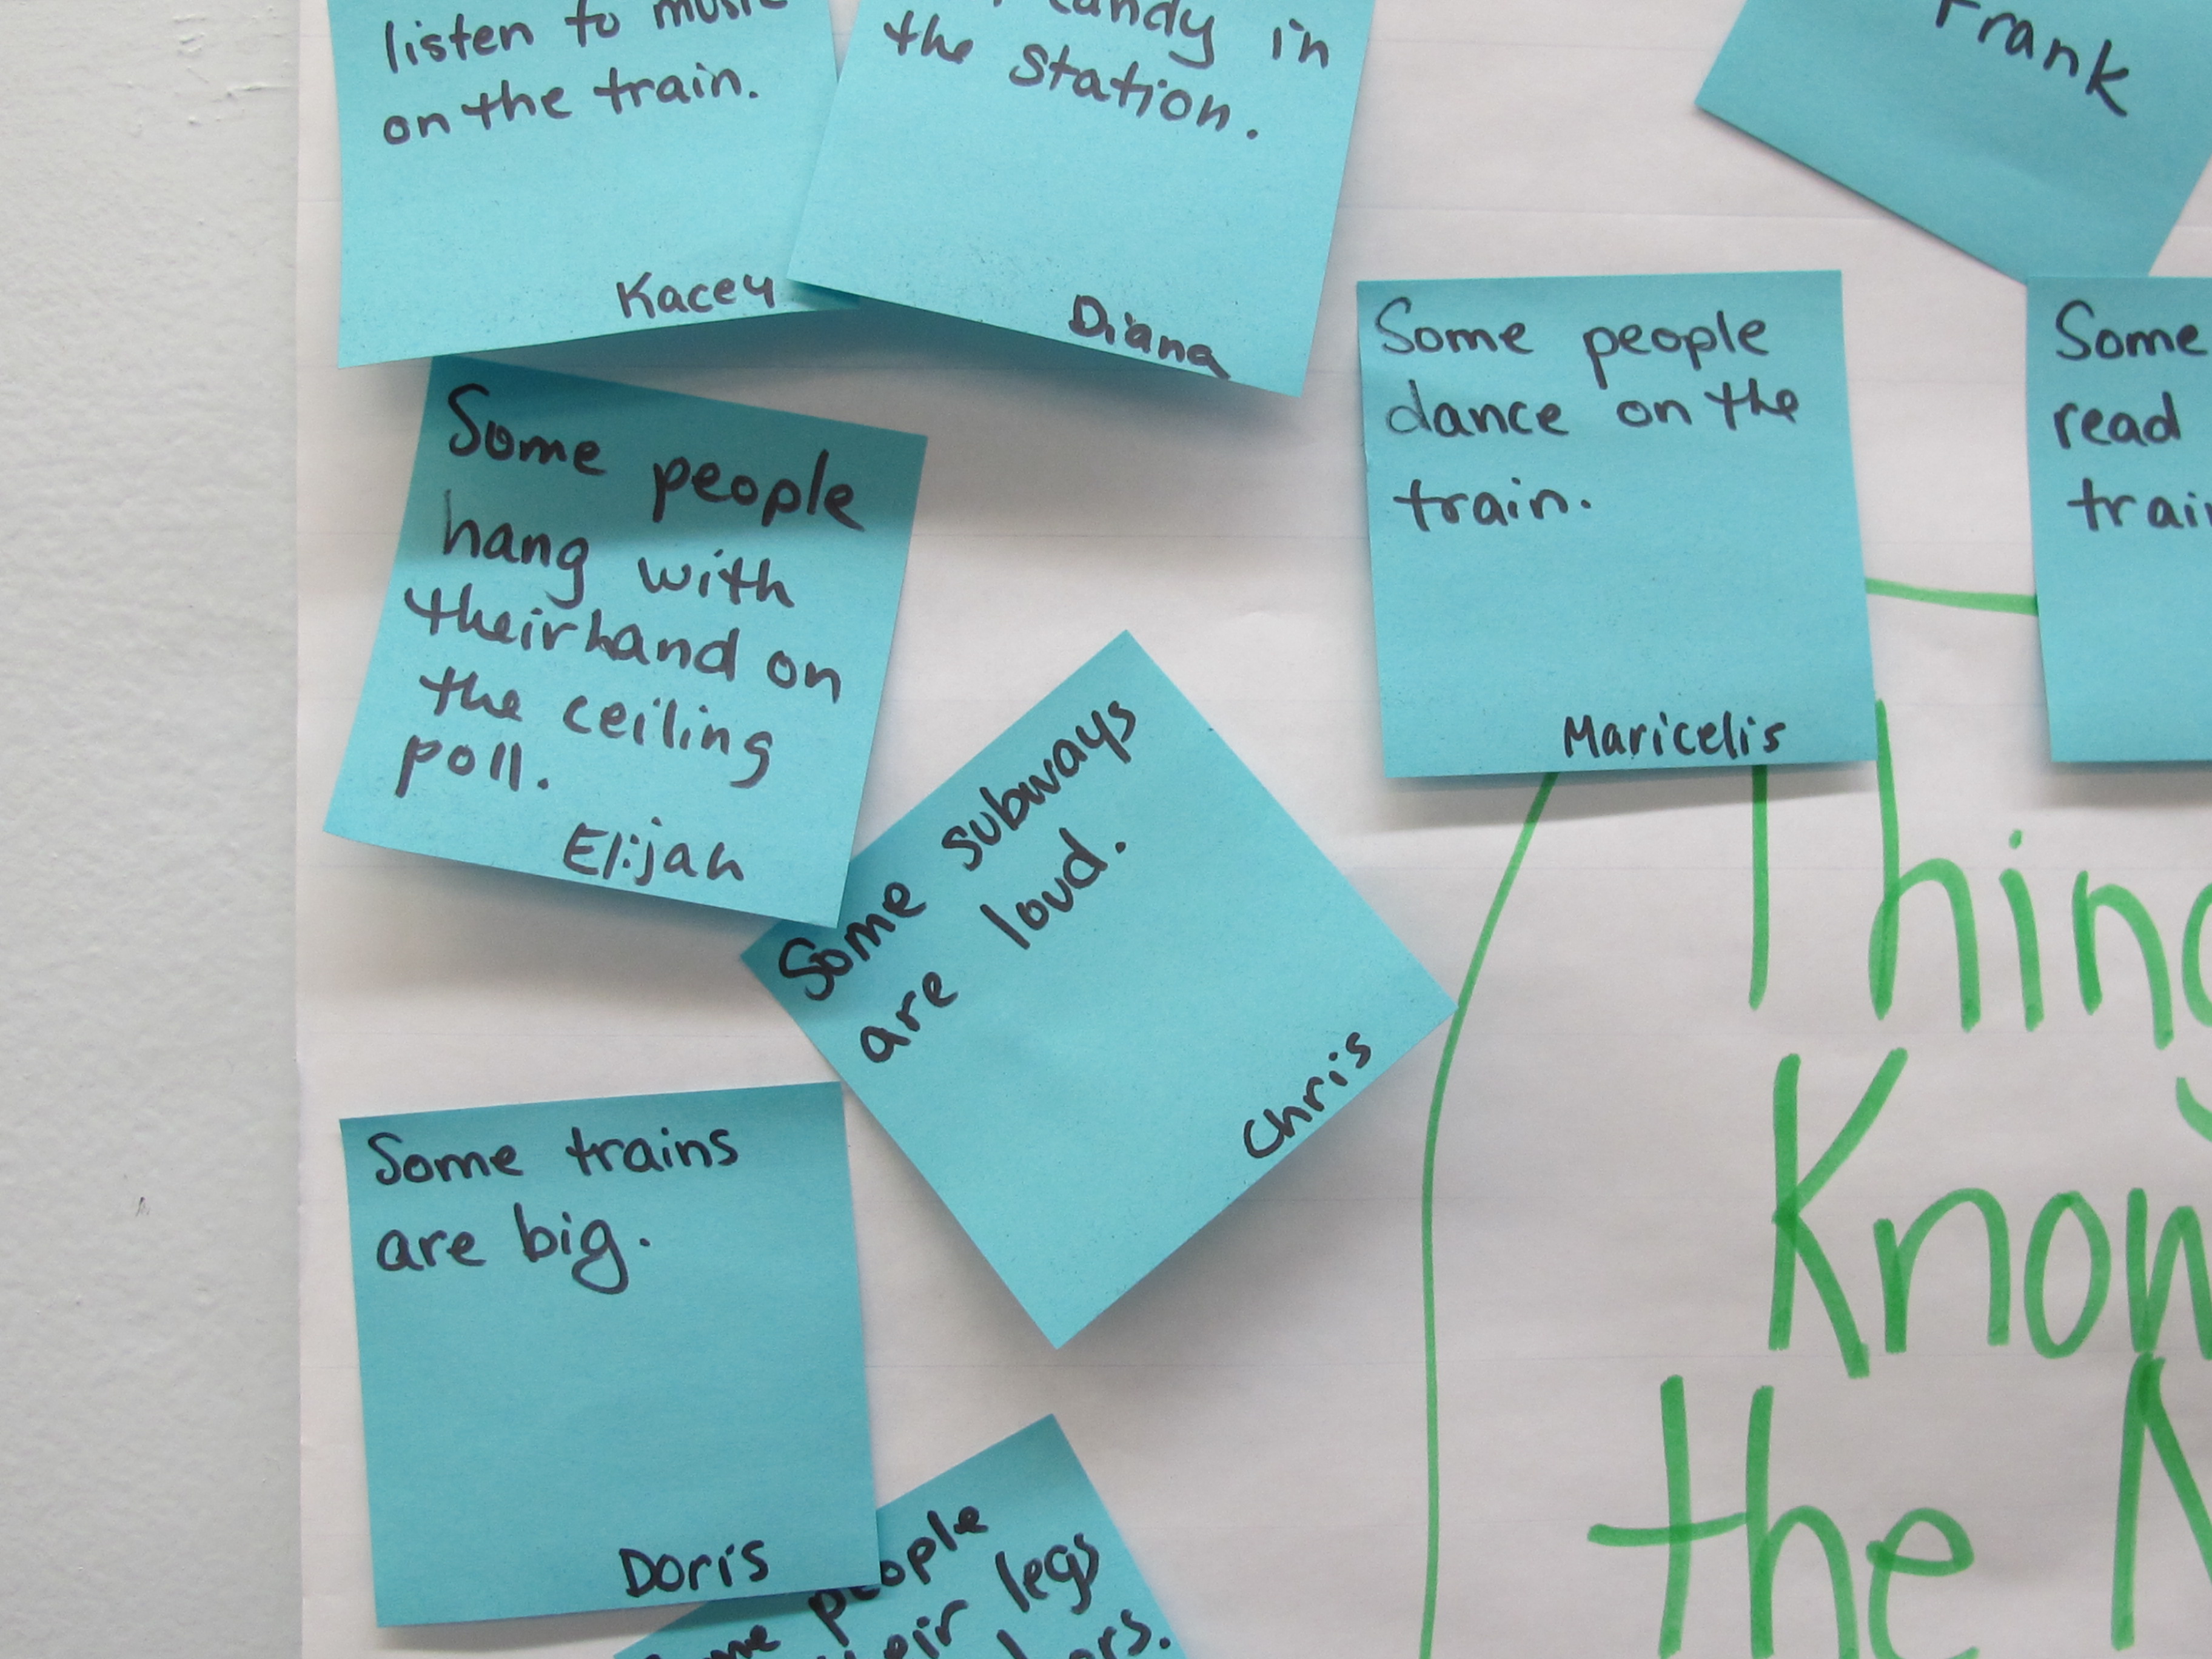 listen to music
on the train.
Kacey
candy in
the station.
Diana
Frank
Some people
hang with
their hand on
the ceiling
poll.
Elijah
Some people
dance on the
train.
Maricelis
Some
read
Some subways
are loud.
Chris
Some trains
are big.
Doris
people
legs
Know
the